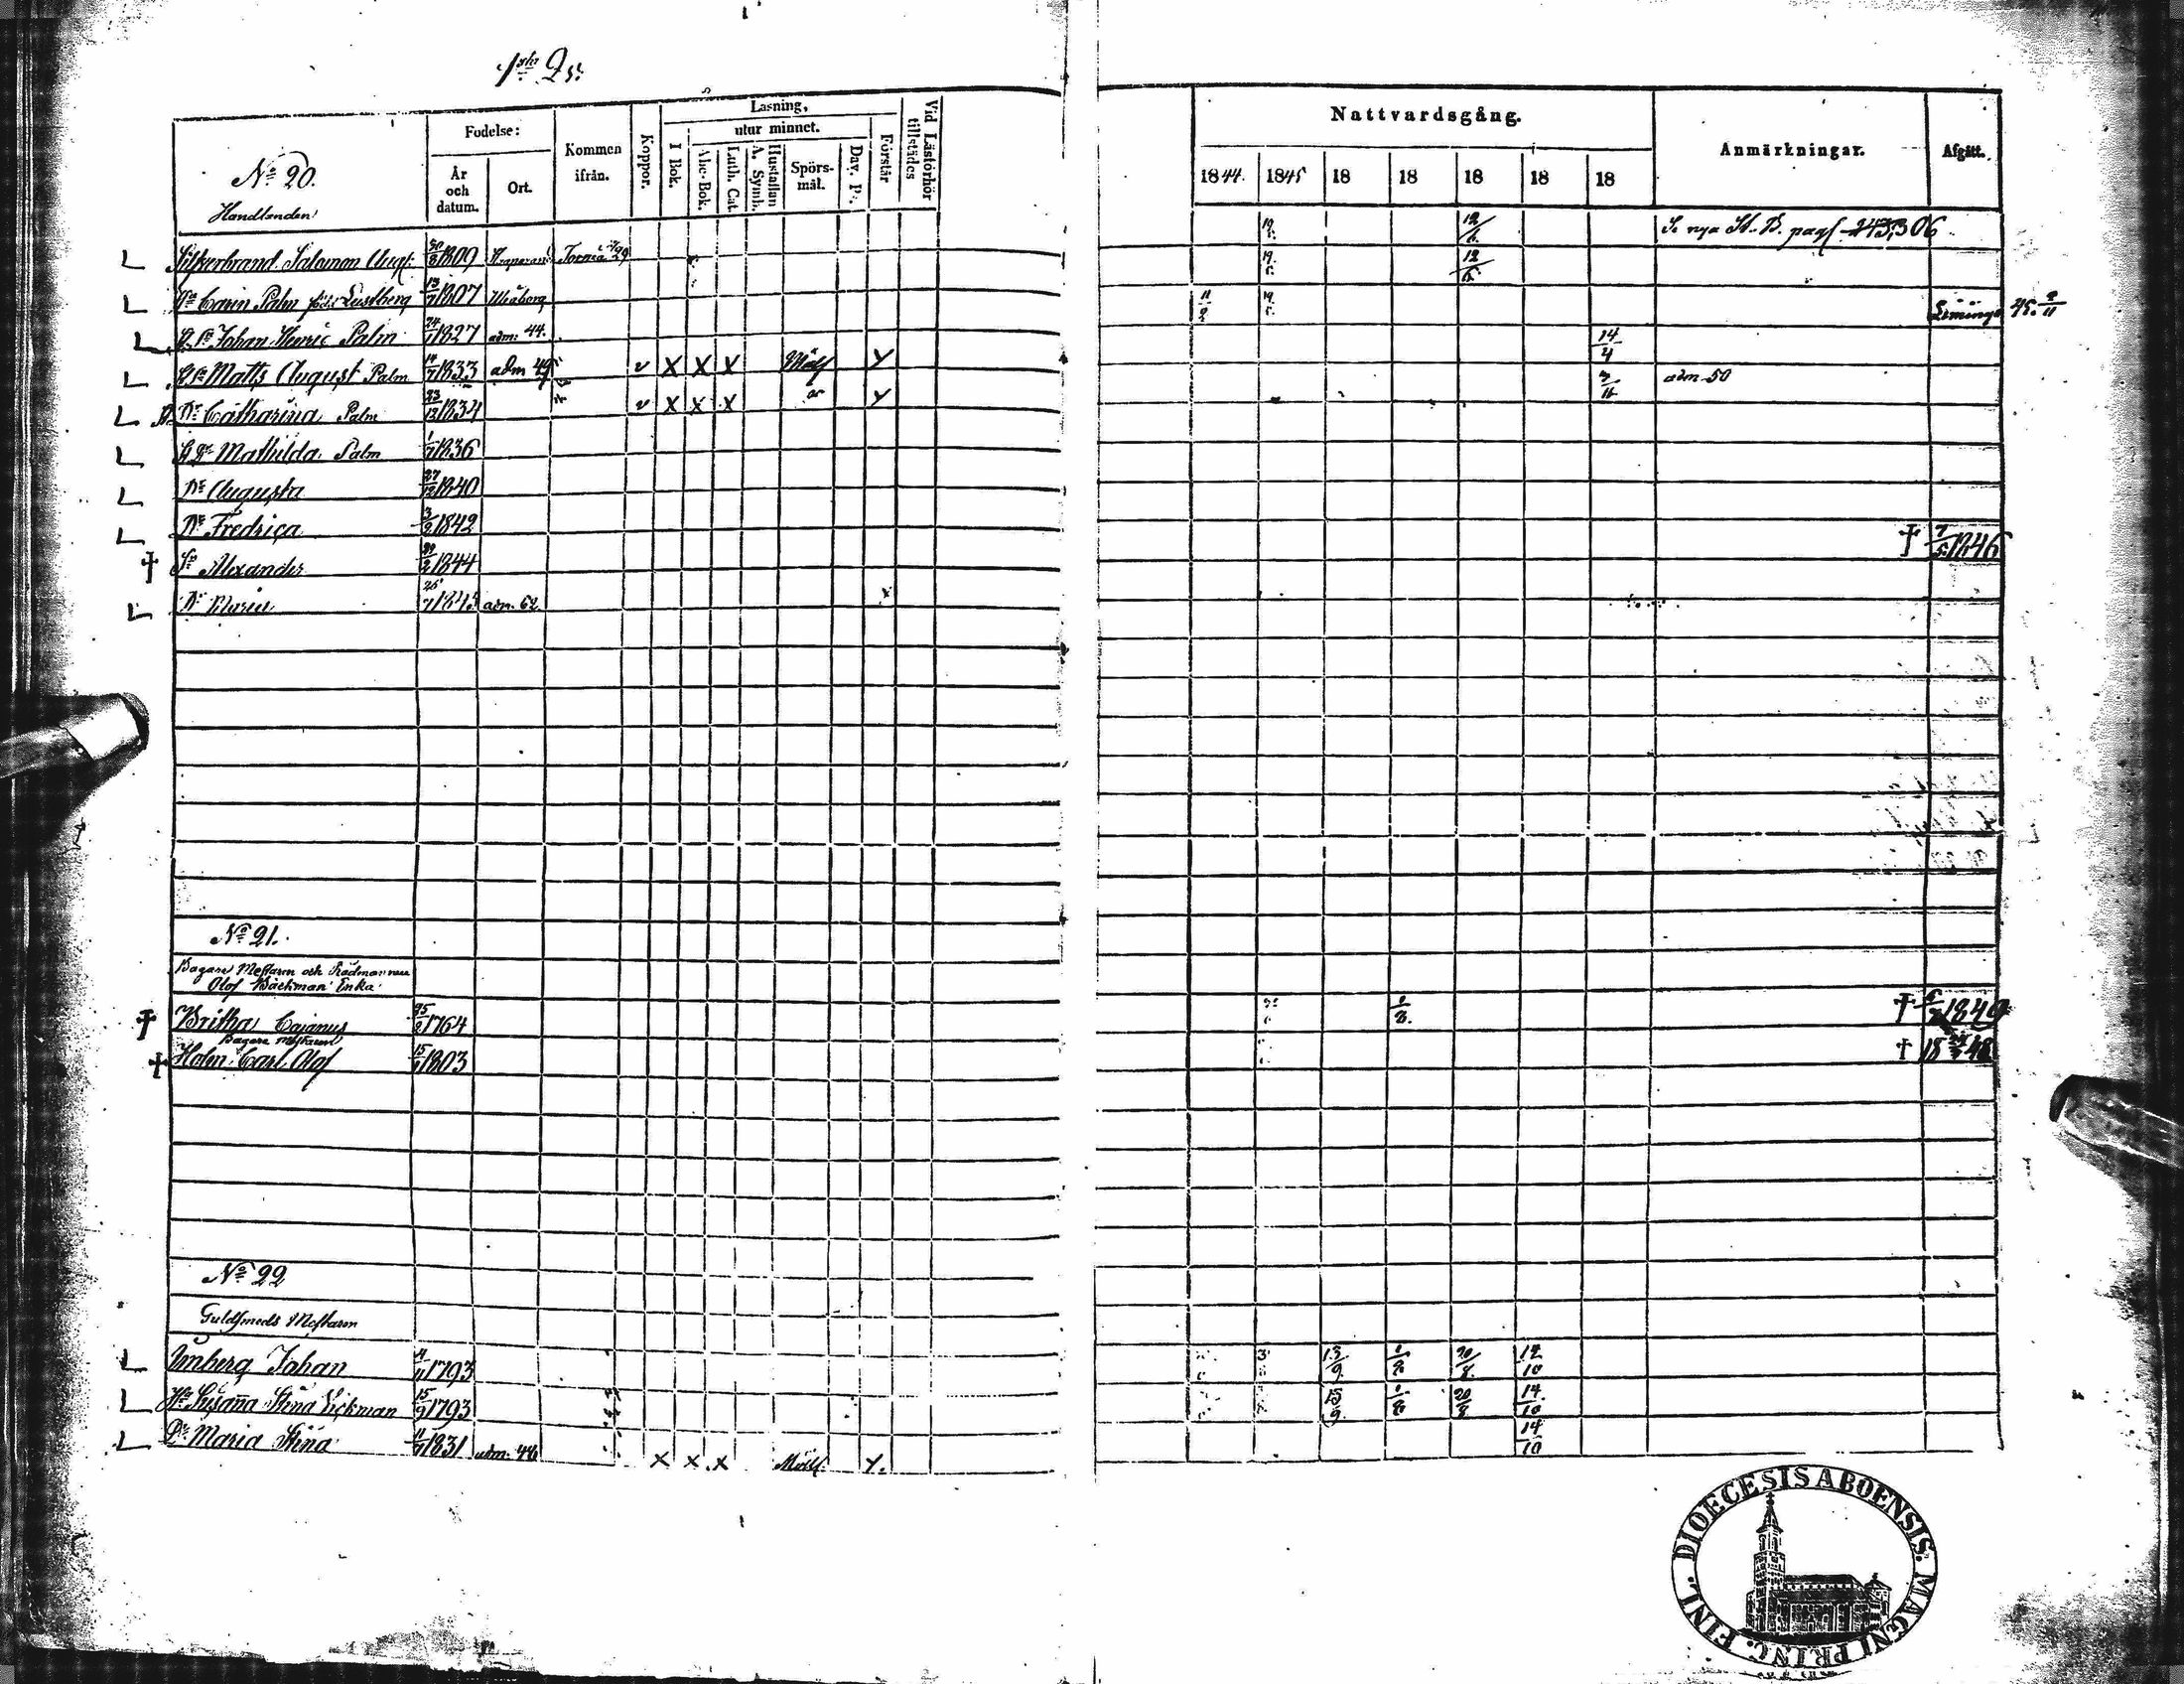 1sta Qr.
No 20.
Handlanden
Födelse:
År och datum.
Ort.
Kommen ifrån.
Koppor.
Läsning,
I Bok.
utur minnet.
Abc-Bok.
Luth. Cat.
Hustaflan A. Symb.
Spörsmål.
Dav. Ps.
Förstår
Vid Läsförhör tillstädes
Nattvardsgång.
1844. 1845 18 18 18 18 18
Anmärkningar.
Afgått.
Silfverbrand Salomon Aug. 30/8 1809 Torneå 29 19 12/6 Se nya K. B. pag. 306
Hu Carin Palm född Lustberg 13/7 1807 Uleåborg 19 12/6
Johan Henric Palm 24/1 1827 adm. 44. 11 19 Limingo 45.
Matts August Palm 14/7 1833 adm 49 v X X X Y 14/4
Dr Catharina Palm 1834 v X X X Y adm 50
Mathilda Palm 1836
Dr Augusta 27/12 1840
Dr Fredrica 3/2 1842
Sn Alexander 1844 † 7/5 1846
Dr Maria 25/7 1845 adm. 62 x
No 21.
Bagare Mestaren och Rådmannen
Olof Bäckman Enka
† Britha Cajanus 25/2 1764 † 1849
Bagare Mestaren
† Holm Carl Olof 15 1803 † 1848
No 22
Guldsmeds Mestaren
L Umberg Johan 4/11 1793 13/9 20/8 14/10
L Hu Susanna Stina Wickman 15/9 1793 13/9 20/8 14/10
L Dr Maria Stina 11 1831 adm. 46 X X X Y. 14/10
DIOECESIS ABOENSIS. MAGNI PRINC. FINL.